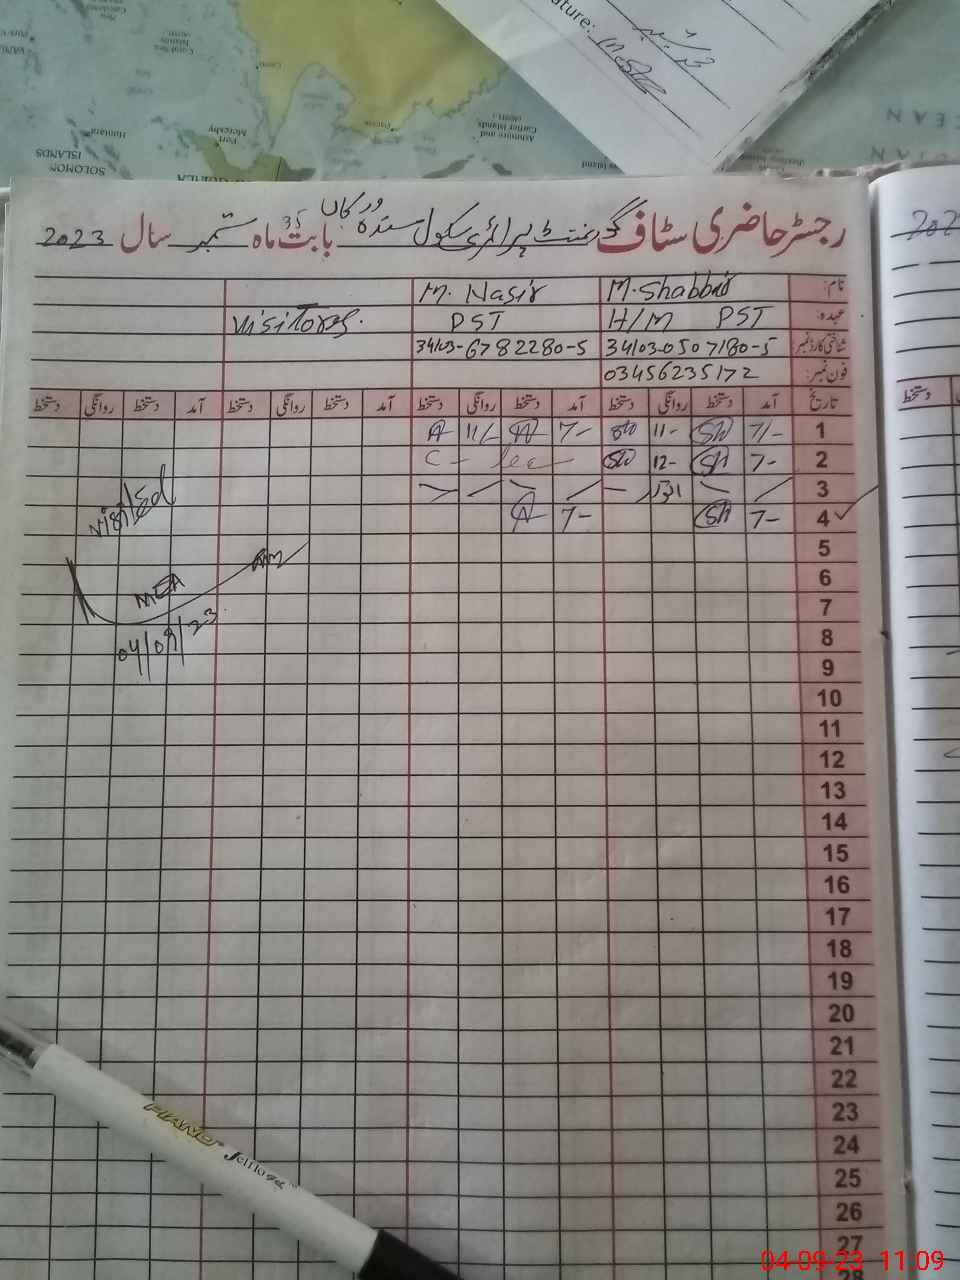 ature:
OCEAN
SOLOMON
ISLANDS
Honiara
Port
Moresby
Coral Sea
Islands
Ashmore and
Cartier Islands
رجسٹر حاضری سٹاف گورنمنٹ پرائمری سکول سندہ ورکاں بابت ماہ ستمبر سال 2023
نام: M. Shabbir M. Nasir
عہدہ: H/M PST PST Visitores.
شناختی کارڈ نمبر: 34103-0507180-5 34103-6782280-5
فون نمبر: 03456235172
تاریخ آمد دستخط روانگی دستخط آمد دستخط روانگی دستخط آمد دستخط روانگی دستخط آمد دستخط روانگی دستخط
1 7/- Sh 11- Sh 7- 11/-
2 7- Sh 12- Sh C- lea
3 اتوار
4 7- Sh 7-
5
6
7
8
9
10
11
12
13
14
15
16
17
18
19
20
21
22
23
24
25
26
27
28
visited
MEA
04/09/23
PIANO Jellogel
04-09-23 11:09